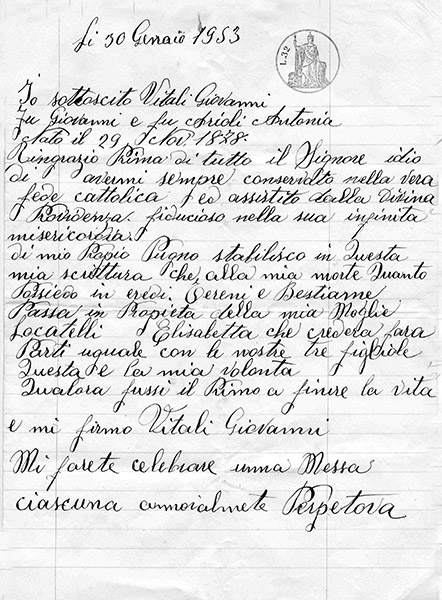 li 30 Gennaio 1953
L. 32
Io sottoscito Vitali Giovanni
fu Giovanni e fu Arioli Antonia
Nato il 29 Nov. 1878.
Ringrazio Prima di tutto il Signore idio
di avermi sempre conservato nella vera
fede cattolica, ed assistito dalla Divina
Providenza. fiducioso nella sua infinita
misericordia.
di mio Propio Pugno stabilisco in Questa
mia scrittura che, alla mia morte Quanto
Possiedo in eredi. Tereni e Bestiame
Passa in Propieta della mia Moglie
Locatelli Elisabetta che credera fara
Parti uguale con le nostre tre figliole
Questa e la mia volonta
Qualora fussi il Primo a finire la vita
e mi firmo Vitali Giovanni
Mi farete celebrare unna Messa
ciascuna annoialmete Perpetova